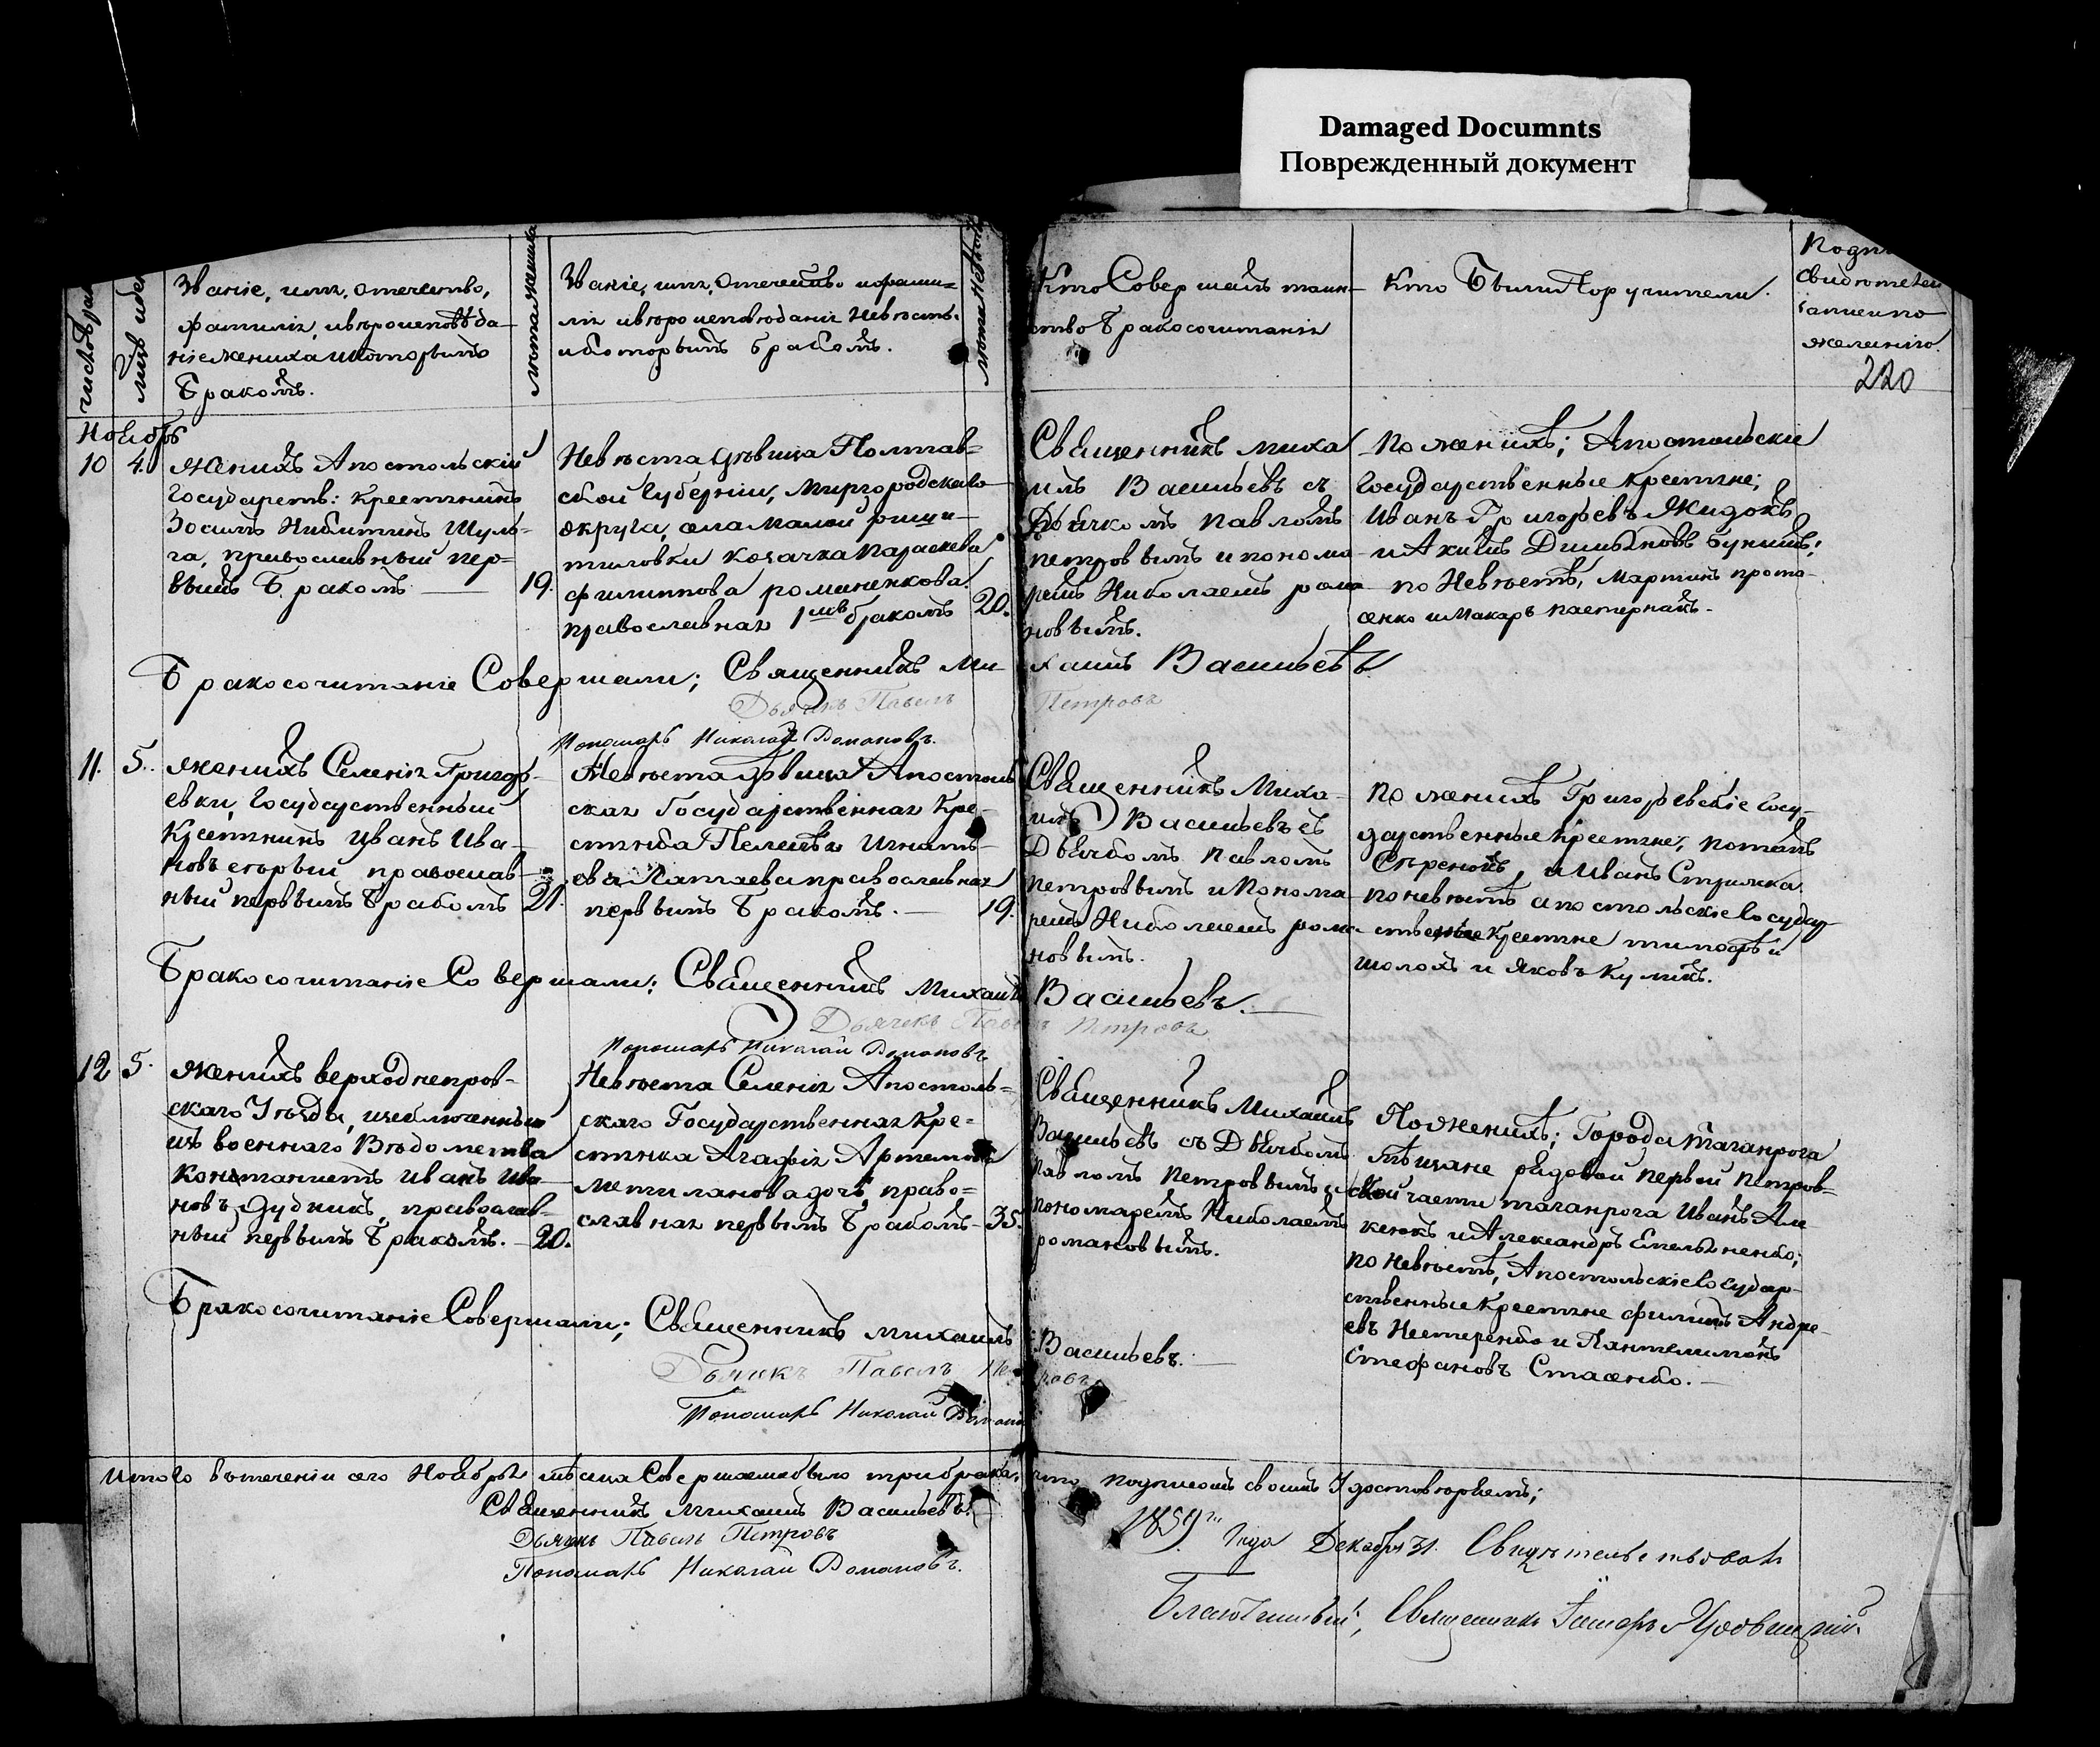 Damaged Documnts
Поврежденный документ
Званіе, имя, отечество,
фамилія, ивѣроисповѣда-
ніе жениха икоторымъ
бракомъ.
лѣта жениха
Званіе, имя, отечество ифами=
лія ивѣроисповѣданіе Невѣсты.
икоторымъ бракомъ.
лѣта Невѣсты
Кто Совершалъ таин-
ство бракосочитанія
Кто были Поручители.
свидѣтелей
записи по
желанію.
220
Ноября
10 4.
Женихъ Апостольскій
Государств: Крестьянинъ
Зосимъ Никитинъ Шуль-
га, православный пер=
вымъ браколъ — 19.
Невѣста дѣвица Полтав=
ской Губерніи, Миргородскаго
округа, села Малой
козачка Параскева
филипова романенкова
православная 1мъ бракомъ 20.
Священникъ Миха
илъ Васильевъ съ
Дьячкомъ Павломъ
петровымъ и понома-
ремъ Николаемъ рома
новымъ.
По женихѣ; Апостольскіе
Государственные крестьяне;
Иванъ Григорьевъ Жидокъ
и Акимъ Бунинъ;
по Невѣстѣ, Мартинъ
сенко и Макаръ пастернакъ.
Бракосочитаніе Совершали; Священникъ Ми-
хаилъ Васильевъ
Дьячкъ Павелъ Петровъ
Пономарь Николай Романовъ.
11. 5.
Женихъ Селенія Григорь-
евки, Государственный
Крестьянинъ Иванъ Ива-
новъ егорѣй православ-
ный первымъ бракомъ 21.
Невѣста дѣвица Апостоль
ская Государственная Кре-
стьянка Пелагѣя Игнать-
ева Латаева православная
первымъ бракомъ. — 19.
Священникъ Миха-
илъ Васильевъ съ
Дьячкомъ Павломъ
петровымъ и Понома-
ремъ Николаемъ рома-
новымъ.
По женихѣ Григорьевскіе Госу-
дарственные Крестьяне, потапъ
и Иванъ Стрижка
по невѣстѣ апостольскіе Государ
ственные Крестьяне тимофѣй
шолохъ и Яковъ Куликъ.
Бракосочитаніе Совершали: Священникъ Михаилъ
Васильевъ.
Дьячекъ Павелъ Петровъ
Пономарь Николай Романовъ
12 5.
Женихъ верходнепров-
скаго Уѣзда, изключенный
изъ военнаго Вѣдомства
Иванъ Ива-
новъ Дудникъ, православ-
ный первымъ бракомъ. — 20.
Невѣста Селенія Апостоль=
скаго Государственная Кре=
стьянка Агафія Артемова
дочь, право=
славная первымъ бракомъ — 35.
Священникъ Михаилъ
Васильевъ съ Дьячкомъ
Павломъ Петровымъ и
пономаремъ Николаемъ
романовымъ.
По женихѣ; Города таганрога
Мѣщане рядовой первой петров-
ской части таганрога Иванъ
и Александръ Емельяненко;
по невѣстѣ, Апостольскіе Государ-
ственные Крестьяне филипъ Андре-
евъ Нестеренко и Пантелимонъ
Стефановъ Стасенко. —
Бракосочитаніе Совершали; Священникъ Михаилъ
Васильевъ. —
Дьячкъ Павелъ Петровъ
Пономарь Николай Романовъ
Итого въ теченіи сего Ноября мѣсяца Совершаемо было три брака, что подписомъ своимъ Удостовѣряемъ;
Священникъ Михаилъ Васильевъ.
Дьячкъ Павелъ Петровъ
Пономарь Николай Романовъ.
1859го года Декабря 31. Свидѣтельствовалъ
Благочинный, Священникъ